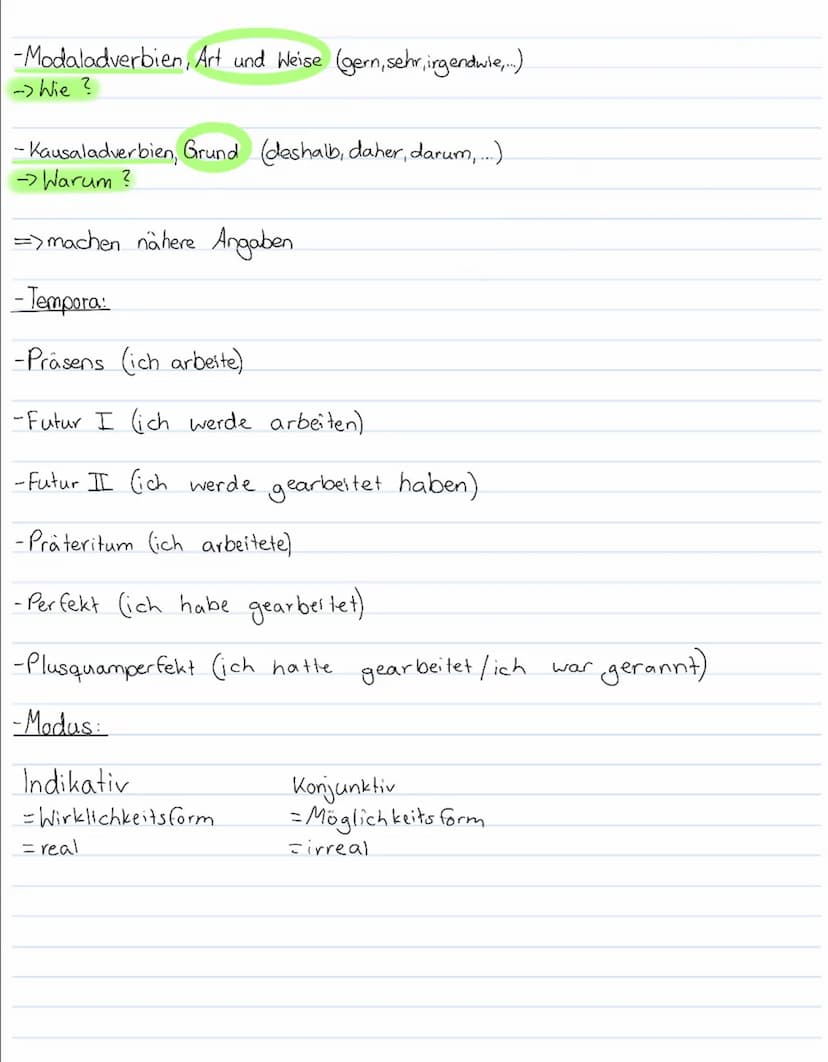 -Modaladverbien, Art und Weise (gern, sehr, irgendwie,...)
-> Wie ?
- Kausaladverbien, Grund (deshalb, daher, darum, ...)
-> Warum ?
=> machen nähere Angaben
- Tempora:
-Präsens (ich arbeite)
-Futur I (ich werde arbeiten)
-Futur II (ich werde gearbeitet haben)
-Präteritum (ich arbeitete)
-Perfekt (ich habe gearbeitet)
-Plusquamperfekt (ich hatte gearbeitet/ich war gerannt)
-Modus:
Indikativ Konjunktiv
=Wirklichkeitsform =Möglichkeitsform
=real =irreal